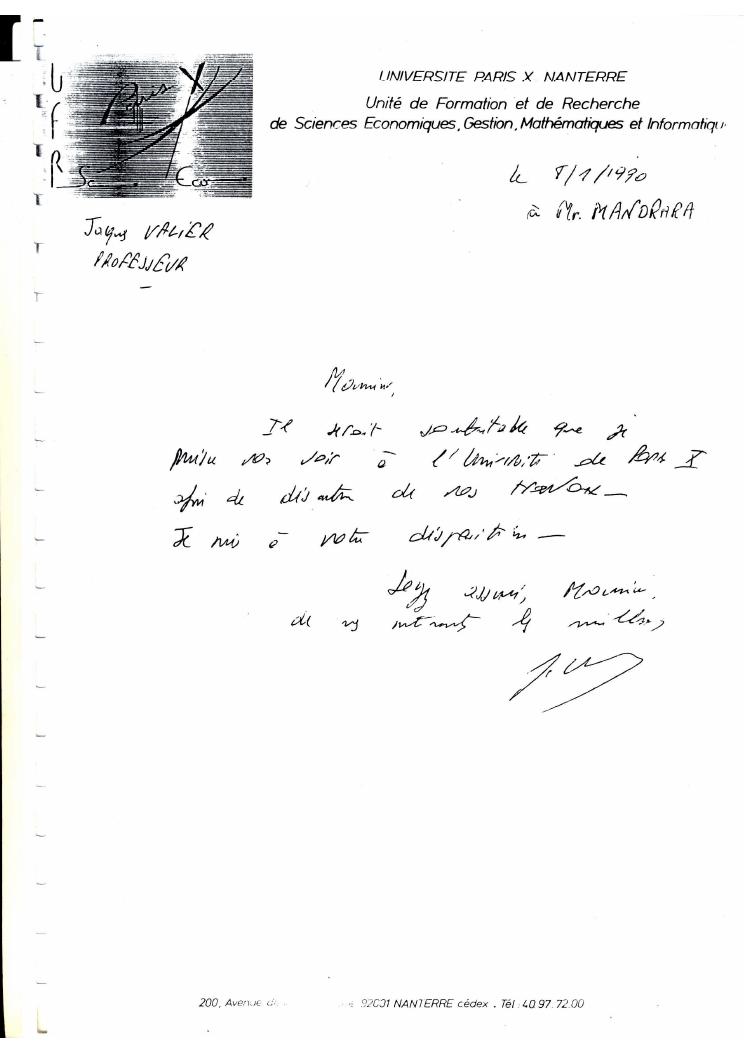 UFR
Paris X
Sc. Eco
UNIVERSITE PARIS X NANTERRE
Unité de Formation et de Recherche
de Sciences Economiques, Gestion, Mathématiques et Informatiqu
le 8/1/1990
à Mr. MANDRARA
Jacques VALIER
PROFESSEUR
Monsieur,
Il serait souhaitable que je
puisse vous voir à l'Université de Paris X
afin de discuter de vos travaux —
Je suis à votre disposition —
Soyez assuré, Monsieur,
de mes sentiments les meilleurs,
200, Avenue de 92001 NANTERRE cédex . Tél : 40.97.72.00